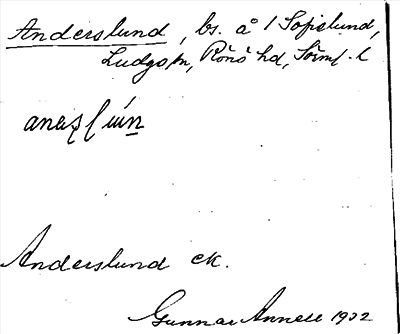 Anderslund, bs. å 1 Sofielund,
Ludgo sn, Rönö hd, Söml. l
Anderslund ek.
Gunnar Annell 1932